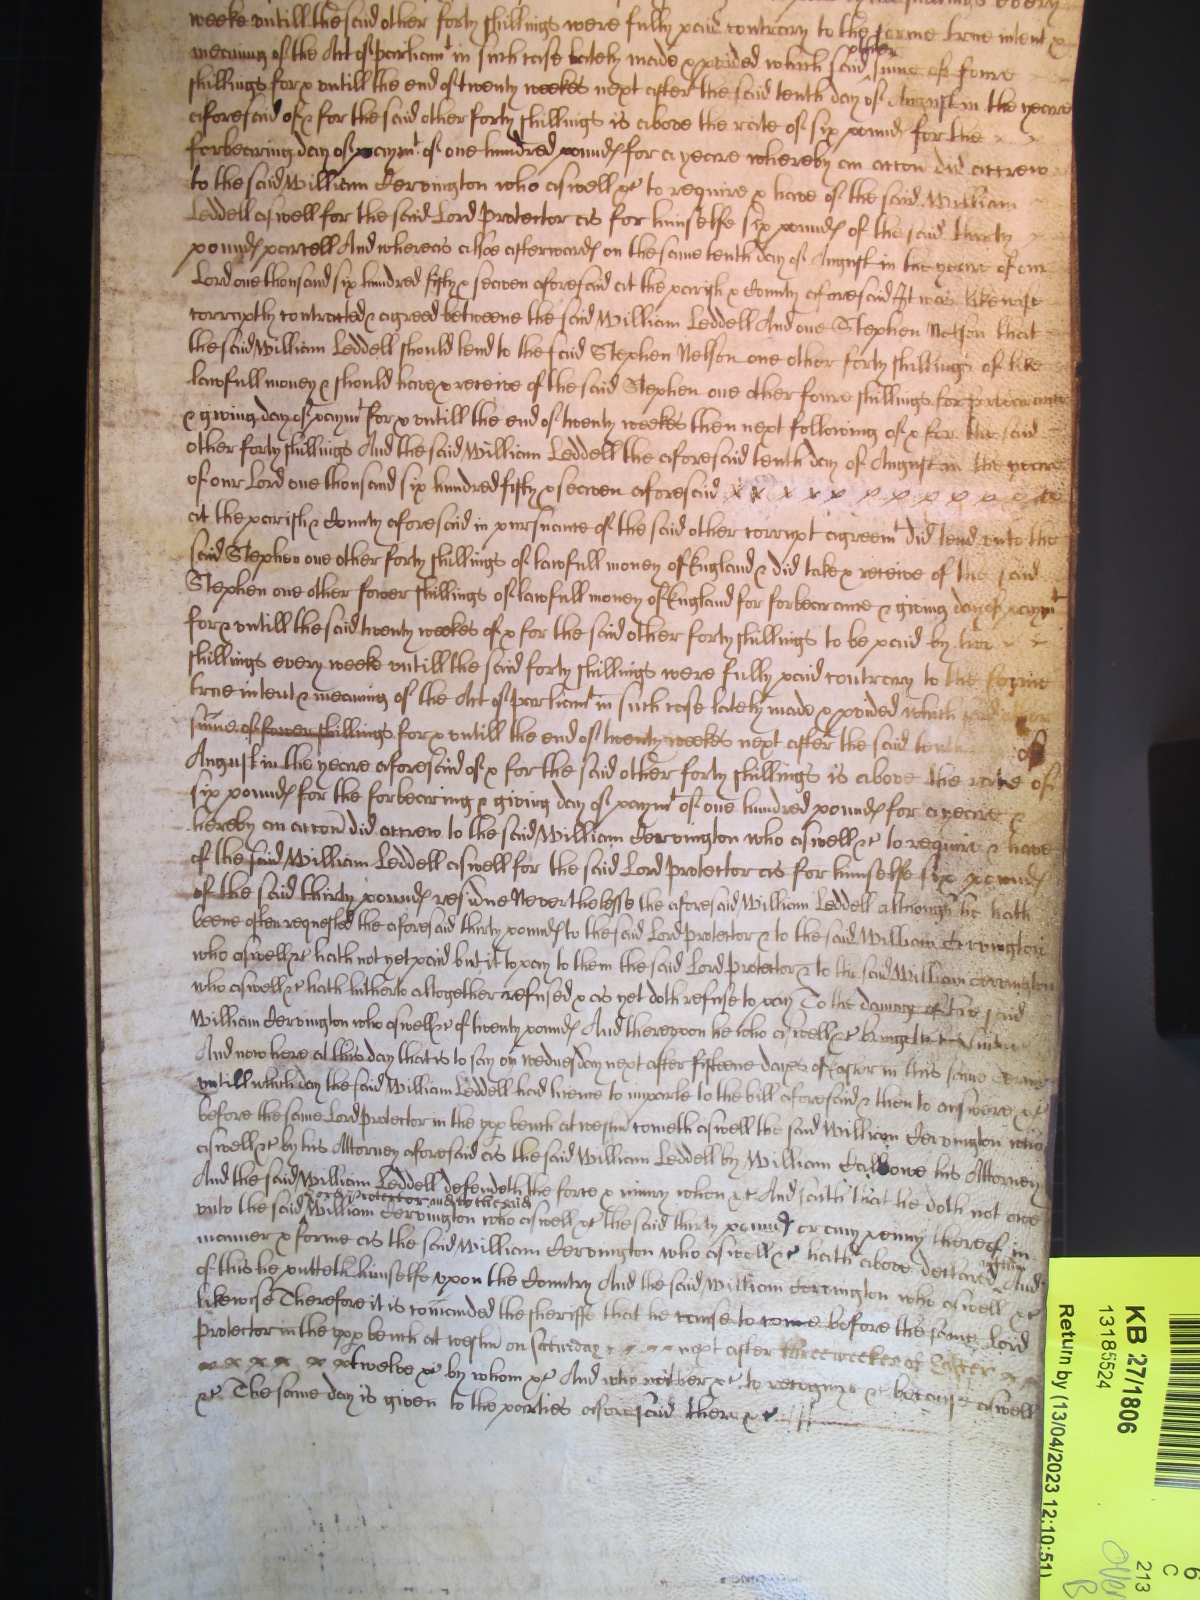 weeke untill the said other forty shillings were fully paid contrary to the forme true intent &
meaning of the Act of parliamt in such case lately made & pvided which said other sume of foure
shillings for & untill the end of twenty weekes next after the said tenth day of August in the yeare
aforesaid of & for the said other forty shillings is above the rate of six pounds for the
forbearing day of paymt of one hundred pounds for a yeare whereby an accon did accrew
to the said William Cervington who aswell &c to require & have of the said William
Leddell aswell for the said Lord Protector as for himselfe six pounds of the said thirty
pounds parcell And whereas alsoe afterwards on the same tenth day of August in the yeare of our
Lord one thousand six hundred fifty & seaven aforesaid at the parish & County aforesaid It was likewise
corruptly contracted & agreed betweene the said William Leddell And one Stephen Nelson that
the said William Leddell should lend to the said Stephen Nelson one other forty shillings of like
lawfull money & should have & receive of the said Stephen one other foure shillings for forbearance
& giving day of paymt for & untill the end of twenty weekes then next following of & for the said
other forty shillings And the said William Leddell the aforesaid tenth day of August in the yeare
of our Lord one thousand six hundred fifty & seaven aforesaid
at the parish & County aforesaid in pursuance of the said other corrupt agreemt did lend unto the
said Stephen one other forty shillings of lawfull money of England & did take & receive of the said
Stephen one other fower shillings of lawfull money of England for forbearance & giving day of paymt
for & untill the said twenty weekes of & for the said other forty shillings to be paid by two
shillings every weeke untill the said forty shillings were fully paid contrary to the forme
true intent & meaning of the Act of parliamt in such case lately made & pvided which said other
sume of fower shillings for & untill the end of twenty weekes next after the said tenth of
August in the yeare aforesaid of & for the said other forty shillings is above the rate of
six pounds for the forbearing & giving day of paymt of one hundred pounds for a yeare &
hereby an accon did accrew to the said William Cervington who aswell &c to require & have
of the said William Leddell aswell for the said Lord Protector as for himselfe six pounds
of the said thirty pounds residue Neverthelesse the aforesaid William Leddell although he hath
beene often requested the aforesaid thirty pounds to the said Lord Protector & to the said William Cervington
who aswell &c hath not yet paid but it to pay to them the said Lord Protector & to the said William Cervington
who aswell &c hath hitherto altogether refused & as yet doth refuse to pay To the damage of the said
William Cervington who aswell &c of twenty pounds And thereupon he who aswell &c bringeth
And now here at this day that is to say on Wednesday next after fifteene dayes of Easter in this same Terme
untill which day the said William Leddell had licence to imparle to the bill aforesaid & then to answere &c
before the same Lord Protector in the upp bench at westm cometh aswell the said William Cervington who
aswell &c by his Attorney aforesaid as the said William Leddell by William his Attorney
And the said William Leddell defendeth the force & iniury when &c And saith that he doth not owe
unto the said Lord Protector and to the said William Cervington who aswell &c the said thirty pounds or any penny thereof in
manner & forme as the said William Cervington who aswell &c hath above declared And
of this he putteth himselfe upon the Country And the said William Cervington who aswell &c
likewise Therefore it is comanded the sheriffe that he cause to come before the same Lord
Protector in the upp bench at westm on Saturday next after three weekes of Easter
twelve &c by whom &c And who neither &c to recognize &c because aswell
&c The same day is given to the parties aforesaid there &c
KB 27/1806
13185524
Return by (13/04/2023 12:10:51)
213
C
6
over